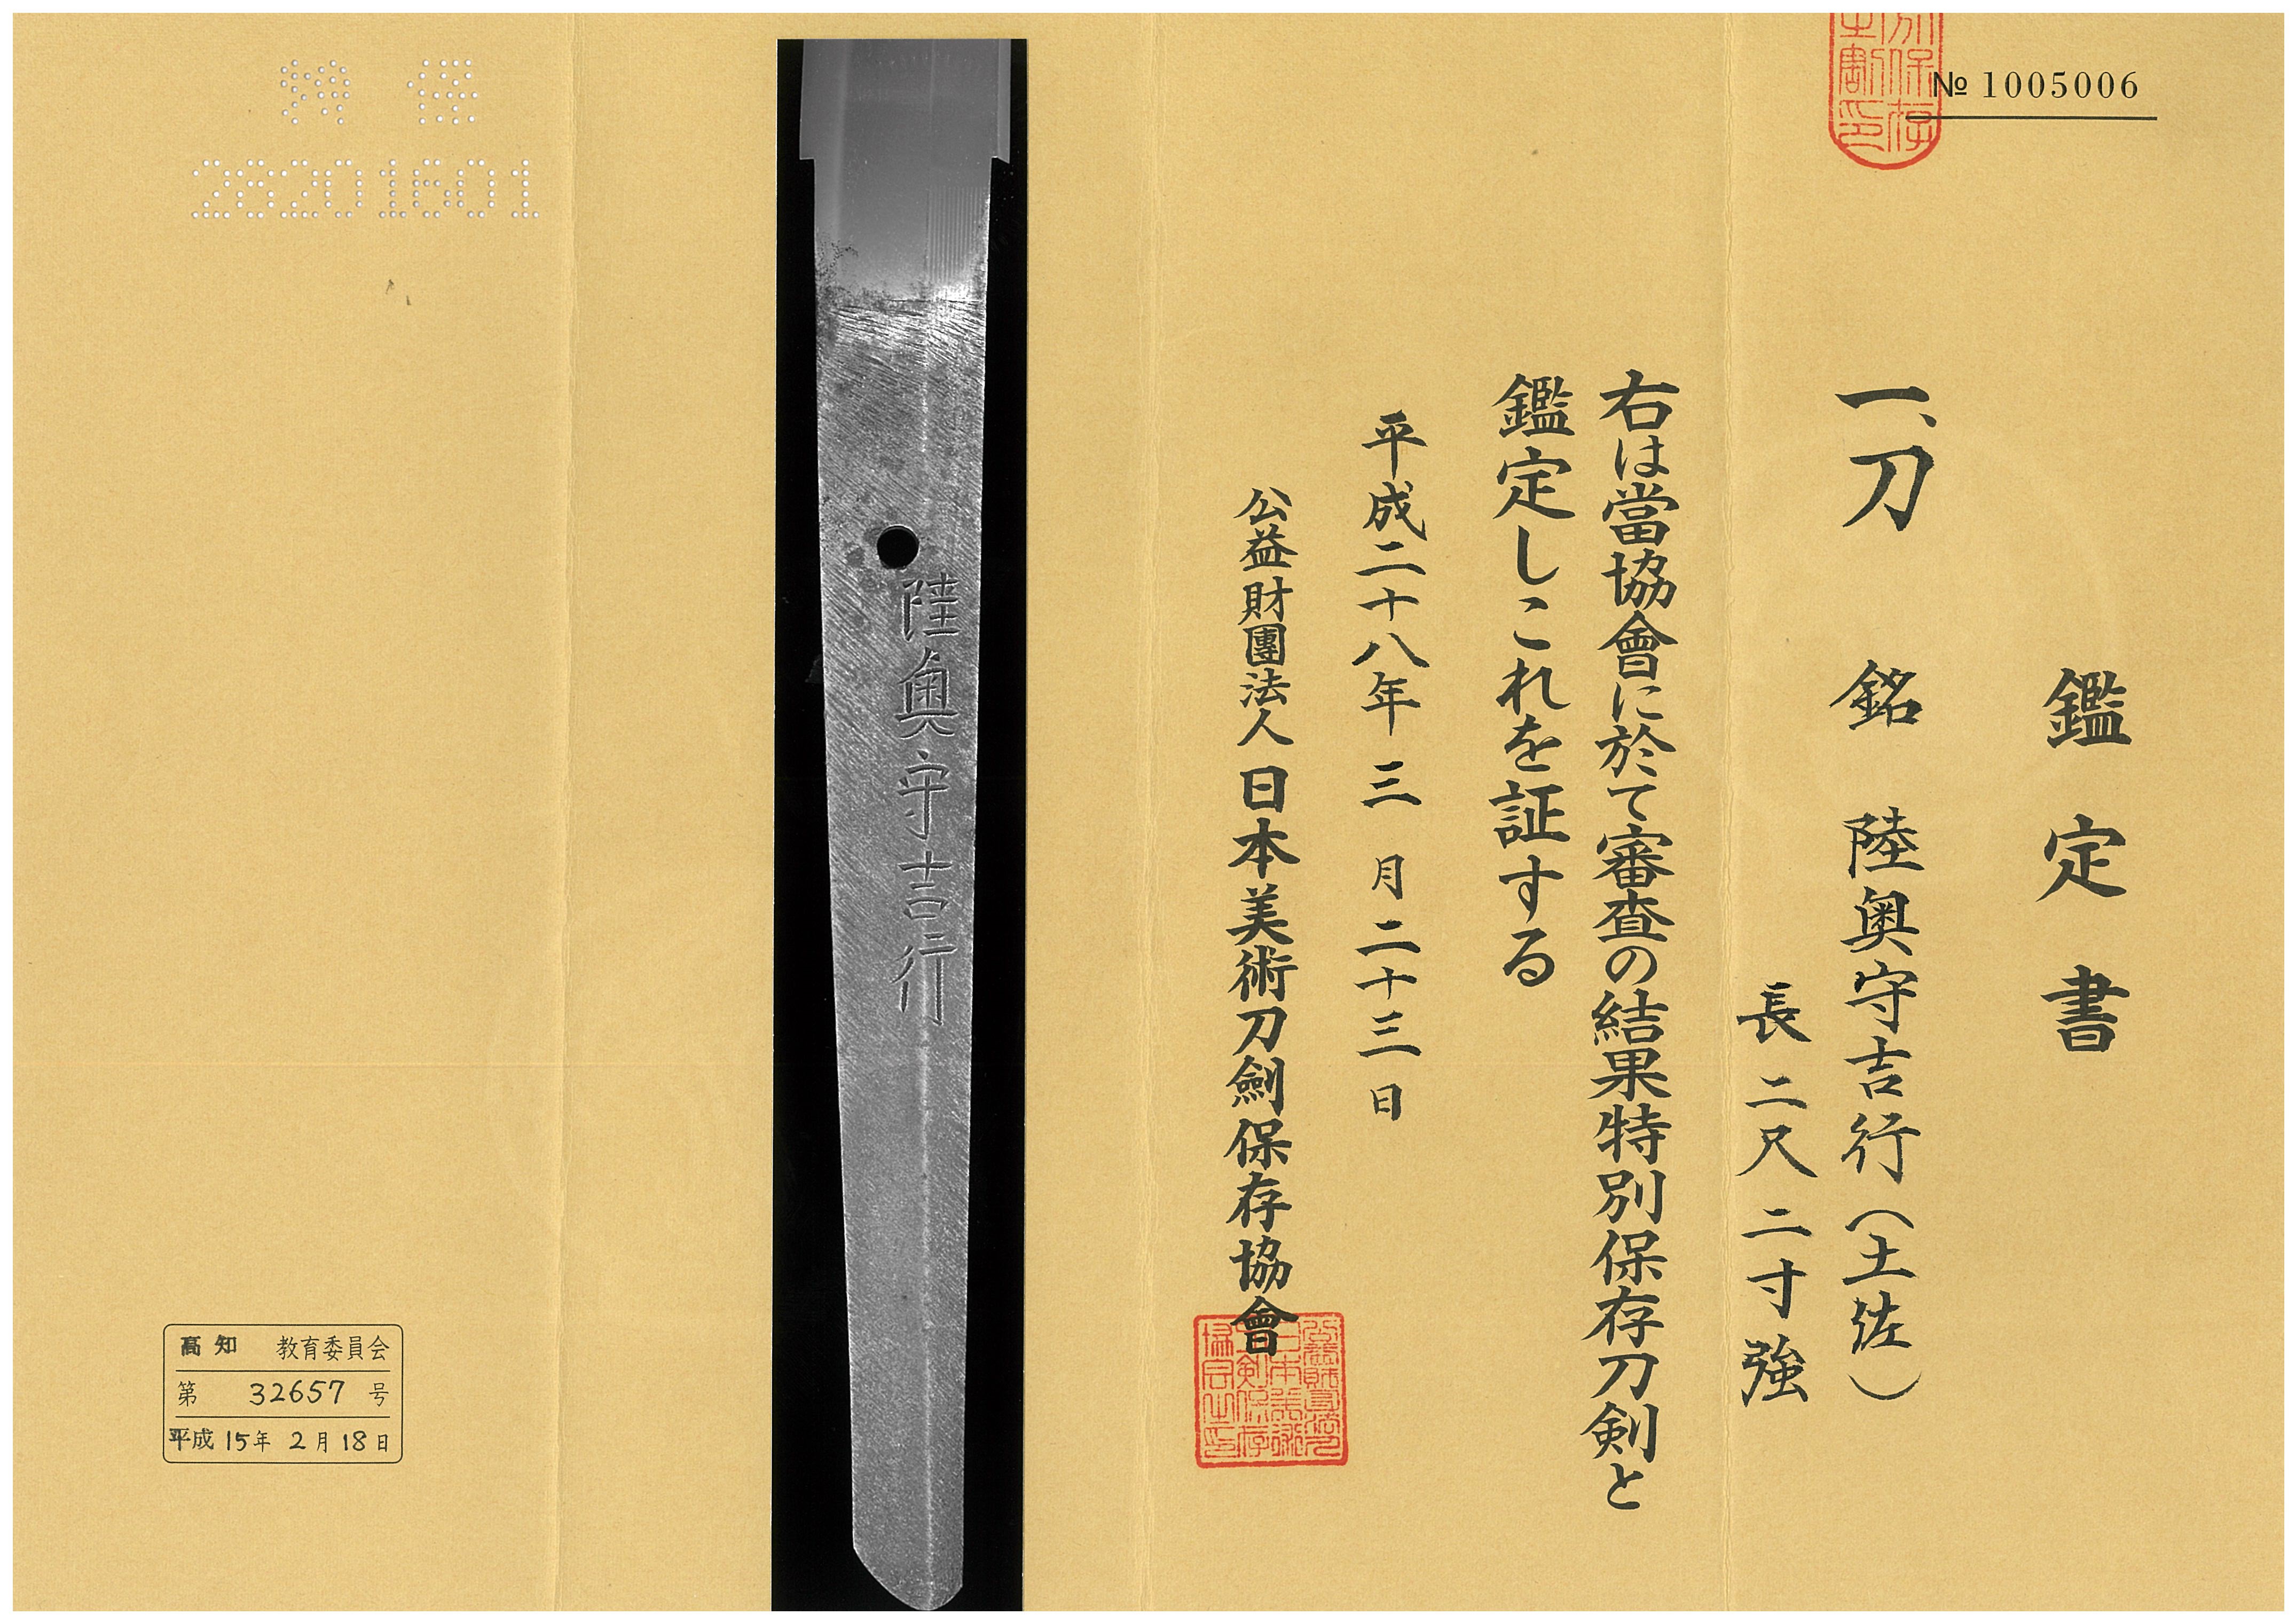 № 1005006
鑑定書
一、刀 銘 陸奥守吉行(土佐)
長 二尺二寸強
右は當協會に於て審査の結果特別保存刀剣と
鑑定しこれを証する
平成二十八年 三 月 二十三 日
公益財團法人 日本美術刀劍保存協會
陸奥守吉行
特 保
28201601
高知 教育委員会
第 32657 号
平成 15年 2月 18日